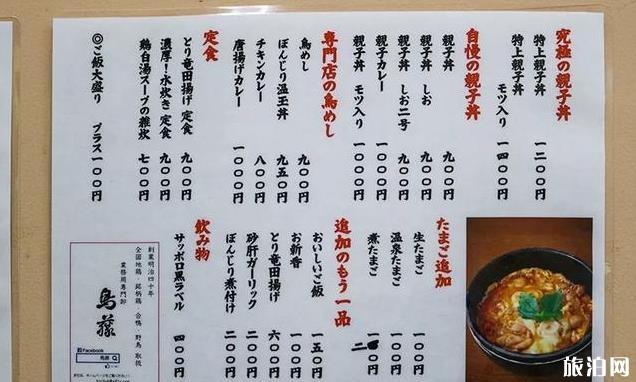 究極の親子丼
特上親子丼 一二〇〇円
特上親子丼 モツ入り 一四〇〇円
自慢の親子丼
親子丼 九〇〇円
親子丼 しお 九〇〇円
親子丼 しお二号 九〇〇円
親子カレー 九〇〇円
親子丼 モツ入り 一〇〇〇円
専門店の鳥めし
鳥めし 九〇〇円
ぼんじり温玉丼 九五〇円
チキンカレー 八〇〇円
唐揚げカレー 一〇〇〇円
定食
とり竜田揚げ 定食 九〇〇円
濃厚！水炊き 定食 九〇〇円
鶏白湯スープの雑炊 七〇〇円
◎ご飯大盛り プラス一〇〇円
たまご追加
生たまご 一〇〇円
温泉たまご 一〇〇円
煮たまご
追加のもう一品
おいしいご飯 一五〇円
お新香
とり竜田揚げ 六〇〇円
砂肝ガーリック 二〇〇円
ぼんじり煮付け 二〇〇円
飲み物
サッポロ黒ラベル 四〇〇円
創業明治四十年
全国地鶏・銘柄鶏・合鴨・野鳥 取扱
業務用専門卸
鳥藤
Facebook
旅泊网